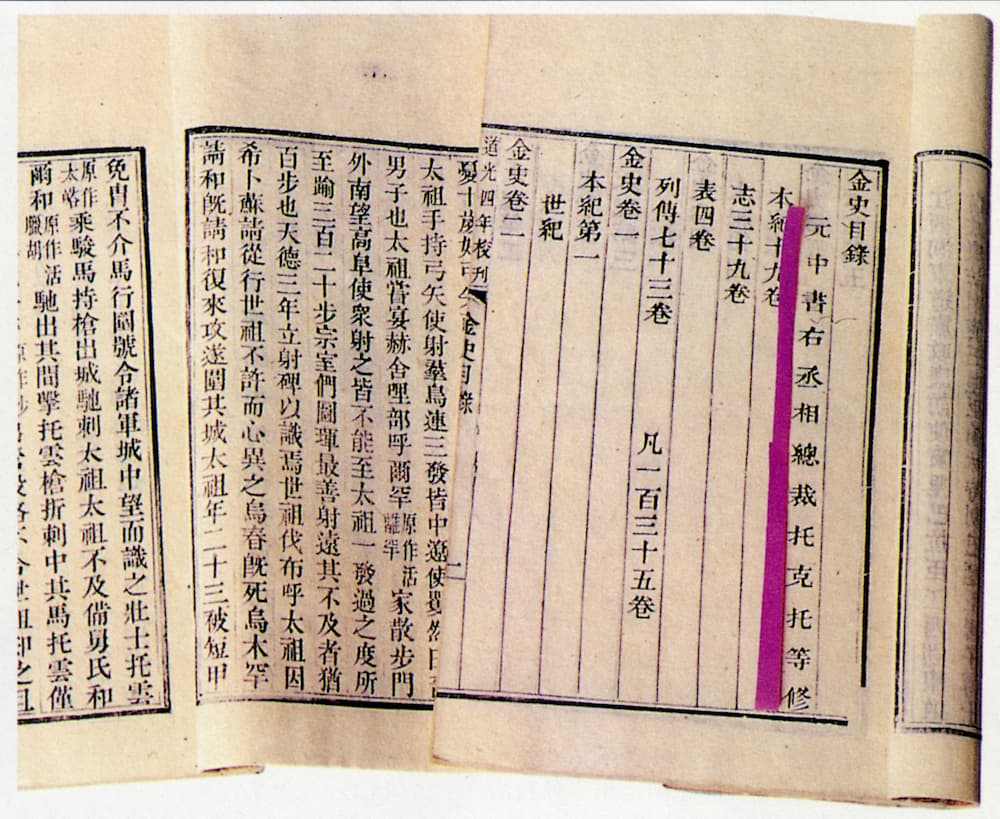 金史目錄
元中書右丞相總裁托克托等修
本紀十九卷
志三十九卷
表四卷
列傳七十三卷 凡一百三十五卷
金史卷一
本紀第一
世紀
金史卷二
道光四年校刊 金史目錄
太祖手持弓矢使射羣鳥連三發皆中遼使矍然曰
男子也太祖嘗宴赫舍哩部呼爾罕原作活離罕家散步門
外南望高阜使衆射之皆不能至太祖一發過之度所
至踰三百二十步宗室們圖琿最善射遠其不及者猶
百步也天德三年立射碑以識焉世祖伐布呼太祖因
希卜蘇請從行世祖不許而心異之烏春既死烏木罕
請和既請和復來攻遂圍其城太祖年二十三被短甲
免冑不介馬行圍號令諸軍城中望而識之壯士托雲
原作太峪乘駿馬持槍出城馳刺太祖太祖不及備舅氏和
爾和原作活臘胡馳出其間擊托雲槍折刺中其馬托雲僅